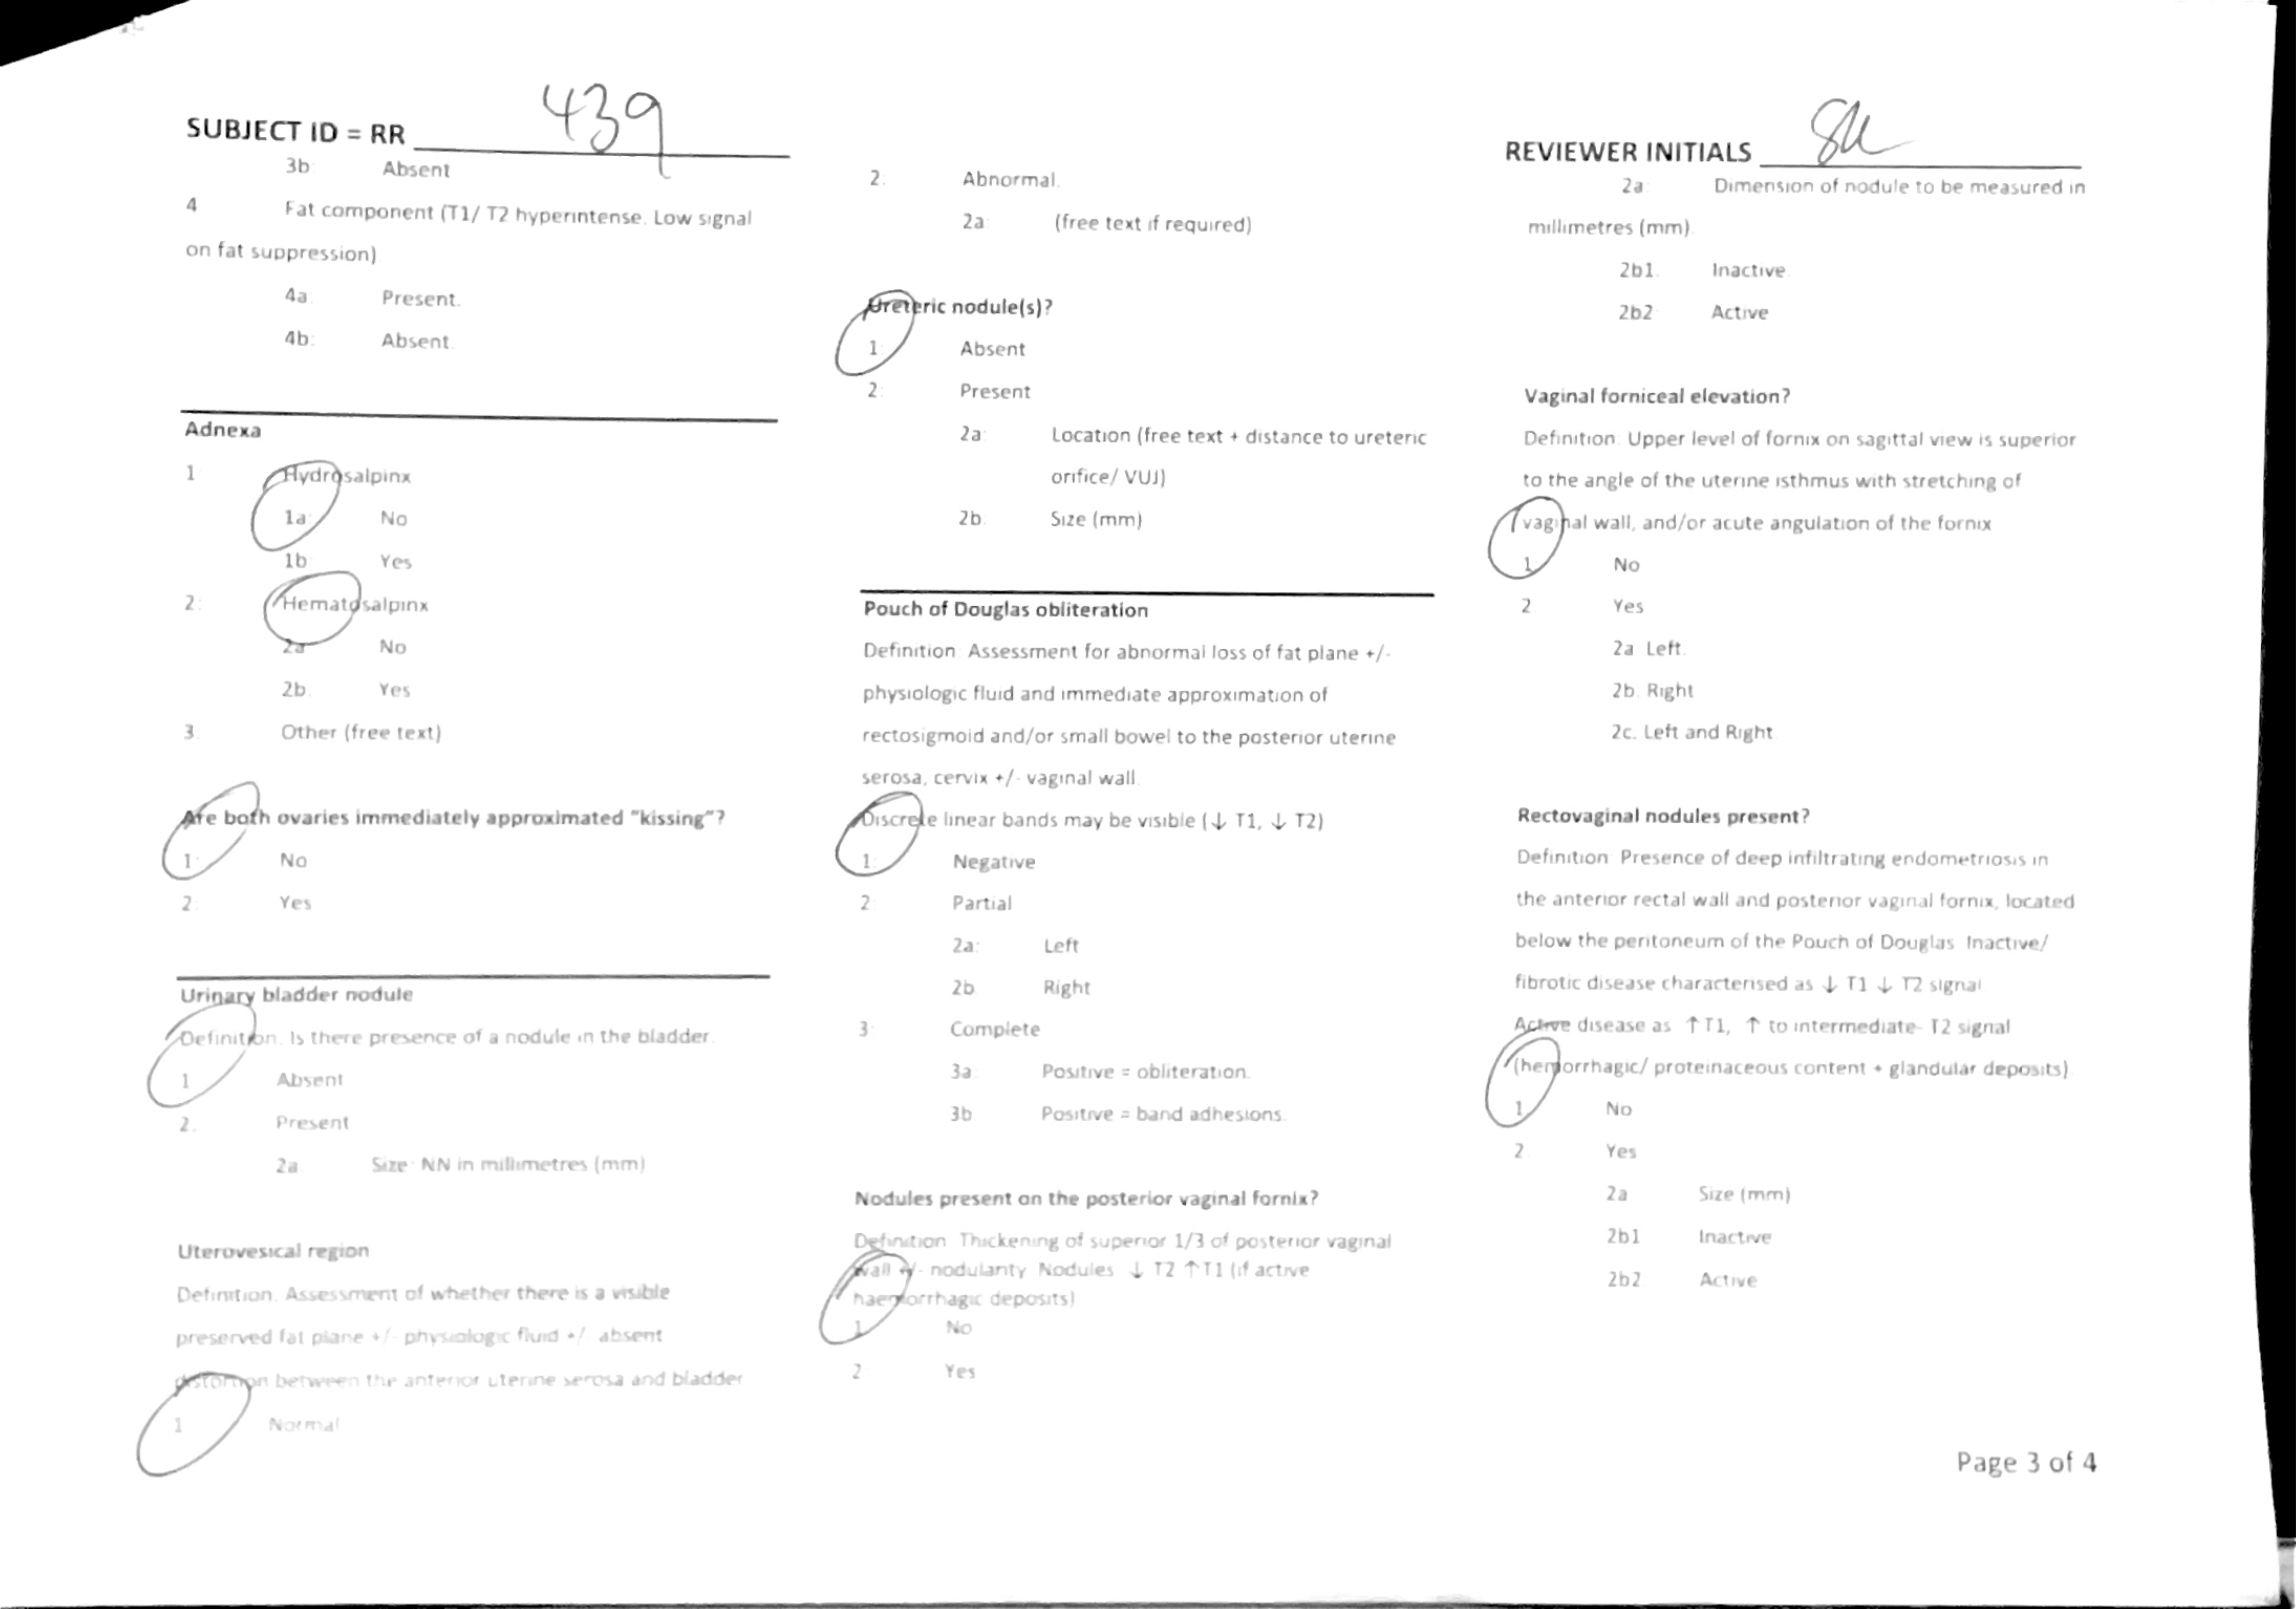 SUBJECT ID = RR 439
3b: Absent
4 Fat component (T1/ T2 hyperintense. Low signal
on fat suppression)
4a: Present.
4b: Absent.
Adnexa
1 Hydrosalpinx
1a: No
1b Yes
2: Hematosalpinx
2a No
2b. Yes
3. Other (free text)
Are both ovaries immediately approximated "kissing"?
1: No
2: Yes
Urinary bladder nodule
Definition. Is there presence of a nodule in the bladder.
1 Absent
2. Present
2a Size: NN in millimetres (mm)
Uterovesical region
Definition. Assessment of whether there is a visible
preserved fat plane +/- physiologic fluid +/- absent
distortion between the anterior uterine serosa and bladder
1 Normal
2. Abnormal.
2a: (free text if required)
Ureteric nodule(s)?
1 Absent
2: Present
2a: Location (free text + distance to ureteric
orifice/ VUJ)
2b. Size (mm)
Pouch of Douglas obliteration
Definition: Assessment for abnormal loss of fat plane +/-
physiologic fluid and immediate approximation of
rectosigmoid and/or small bowel to the posterior uterine
serosa, cervix +/- vaginal wall.
Discrete linear bands may be visible (↓ T1, ↓ T2)
1: Negative
2 Partial
2a: Left
2b Right
3: Complete
3a: Positive = obliteration.
3b Positive = band adhesions.
Nodules present on the posterior vaginal fornix?
Definition Thickening of superior 1/3 of posterior vaginal
wall +/- nodularity Nodules ↓ T2 ↑T1 (if active
haemorrhagic deposits)
1 No
2 Yes
REVIEWER INITIALS
2a: Dimension of nodule to be measured in
millimetres (mm).
2b1. Inactive
2b2 Active
Vaginal forniceal elevation?
Definition. Upper level of fornix on sagittal view is superior
to the angle of the uterine isthmus with stretching of
vaginal wall, and/or acute angulation of the fornix
1 No
2 Yes
2a Left.
2b. Right
2c. Left and Right
Rectovaginal nodules present?
Definition Presence of deep infiltrating endometriosis in
the anterior rectal wall and posterior vaginal fornix, located
below the peritoneum of the Pouch of Douglas Inactive/
fibrotic disease characterised as ↓ T1 ↓ T2 signal
Active disease as ↑T1, ↑ to intermediate- T2 signal
(hemorrhagic/ proteinaceous content + glandular deposits).
1 No
2 Yes
2a Size (mm)
2b1 Inactive
2b2 Active
Page 3 of 4